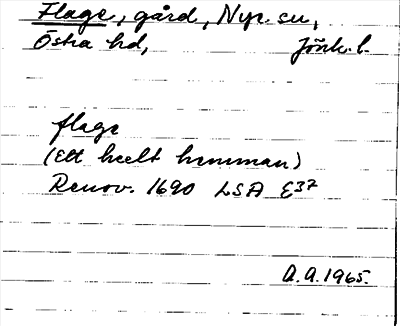 Flage, gård, Nye. su,
Östra hd, Jönk. l.
flage
(Ett heelt hemman)
Renov. 1690 LSA E37
A.A. 1965.